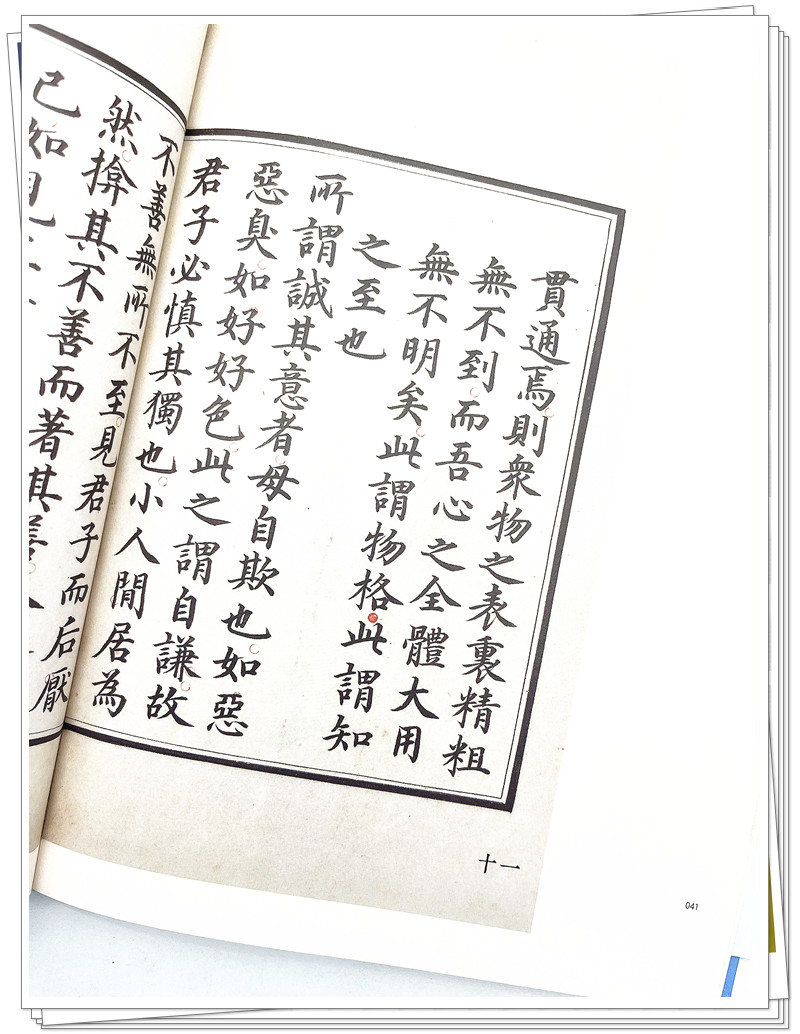 貫通焉則衆物之表裏精粗
無不到而吾心之全體大用
無不明矣此謂物格此謂知
之至也
所謂誠其意者毋自欺也如惡
惡臭如好好色此之謂自謙故
君子必慎其獨也小人閒居為
不善無所不至見君子而后厭
然揜其不善而著其善人
己如見
十一
041